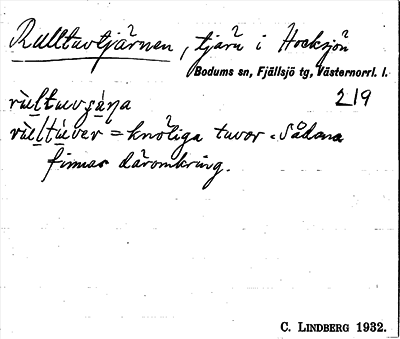 Rulltuvtjärnen, tjärn i Hocksjön
Bodums sn, Fjällsjö tg, Västernorrl. l.
219
= knöliga tuvor. Sådana
finnas däromkring.
C. LINDBERG 1932.